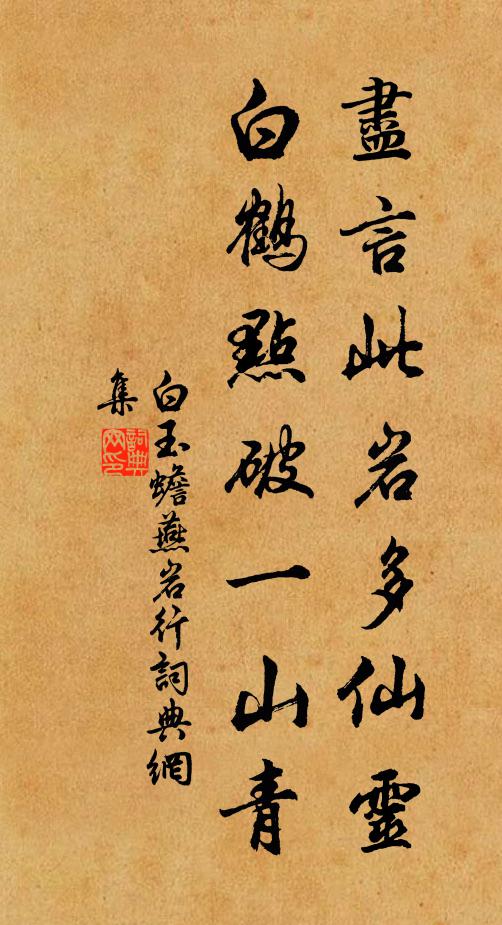 盡言此岩多仙靈
白鶴點破一山青
白玉蟾燕岩行詞典網
集
詞典網印